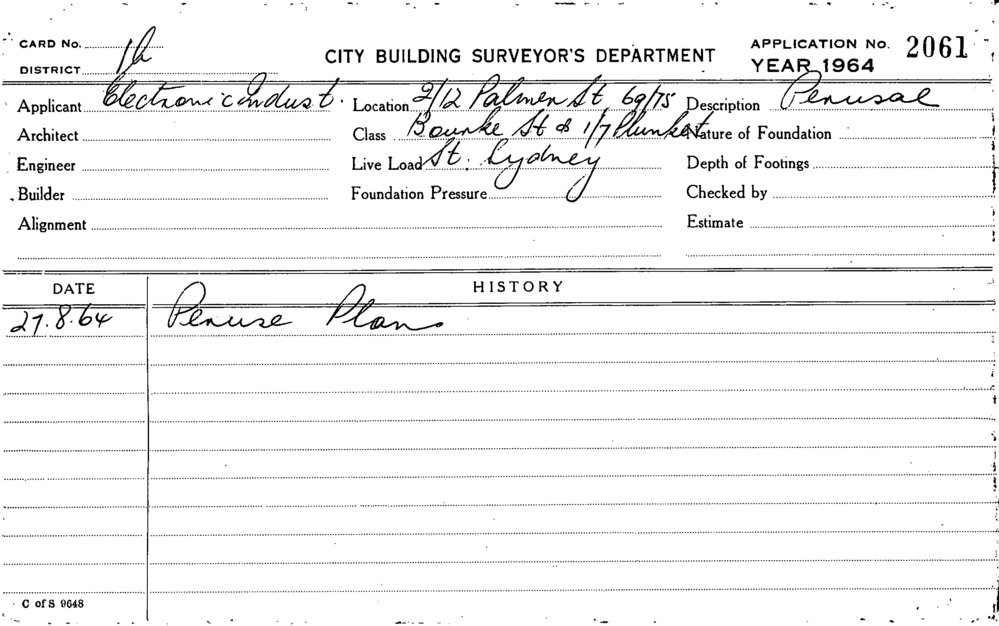 CARD No.
DISTRICT 1h
CITY BUILDING SURVEYOR'S DEPARTMENT
APPLICATION No. 2061
YEAR 1964
Applicant Electronic Indust. Location 2/12 Palmer St, 69/75 Description Perusal
Architect Class Bourke St & 1/7 Plunkett Nature of Foundation
Engineer Live Load St. Sydney Depth of Footings
Builder Foundation Pressure Checked by
Alignment Estimate
DATE HISTORY
27.8.64 Peruse Plans
C of S 9648